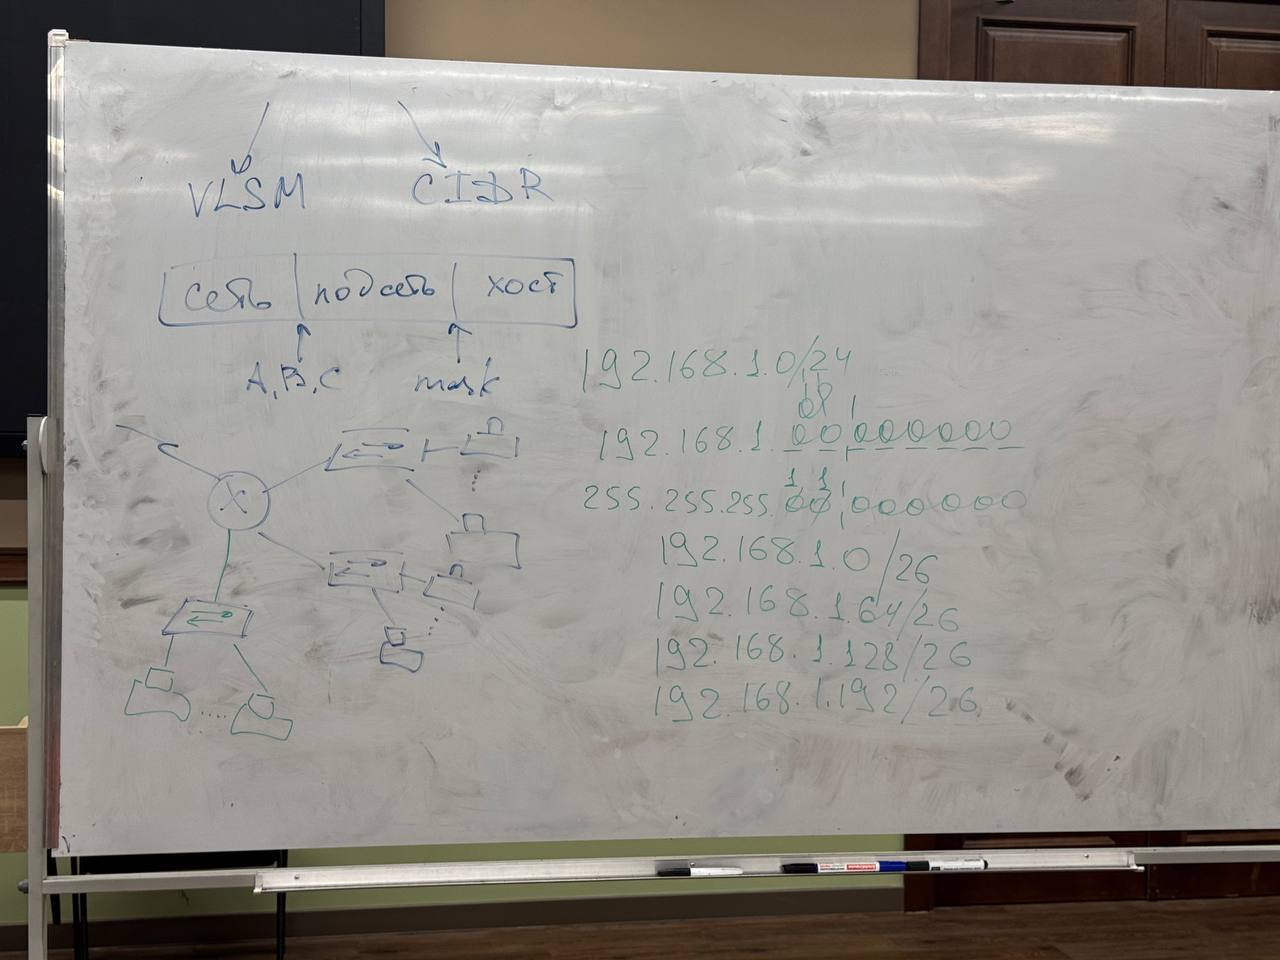 VLSM CIDR
сеть подсеть хост
A, B, C mask
192.168.1.0/24
192.168.1.00000000
255.255.255.00000000
1 1
192.168.1.0/26
192.168.1.64/26
192.168.1.128/26
192.168.1.192/26